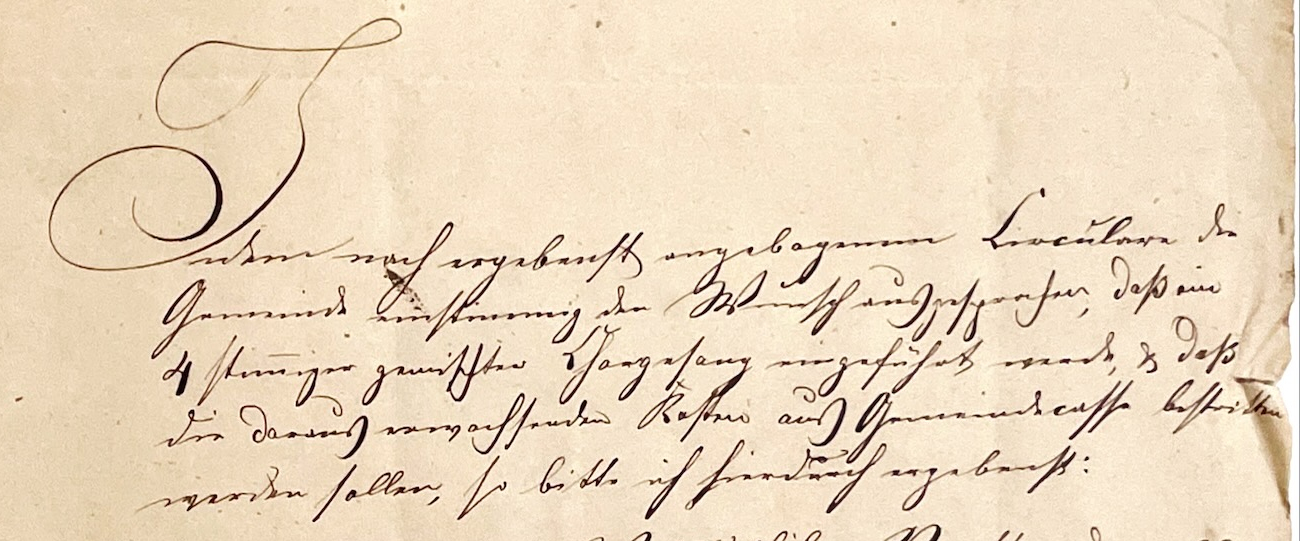 Indem nach ergebenst angebogenem Circulare die
Gemeinde einstimmig den Wunsch ausgesprochen, daß ein
4 stim̄iger gemischter Chorgesang eingeführt werde, & daß
die daraus erwachsenden Kosten aus Gemeindecasse bestritten
werden sollen, so bitte ich hierdurch ergebenst: